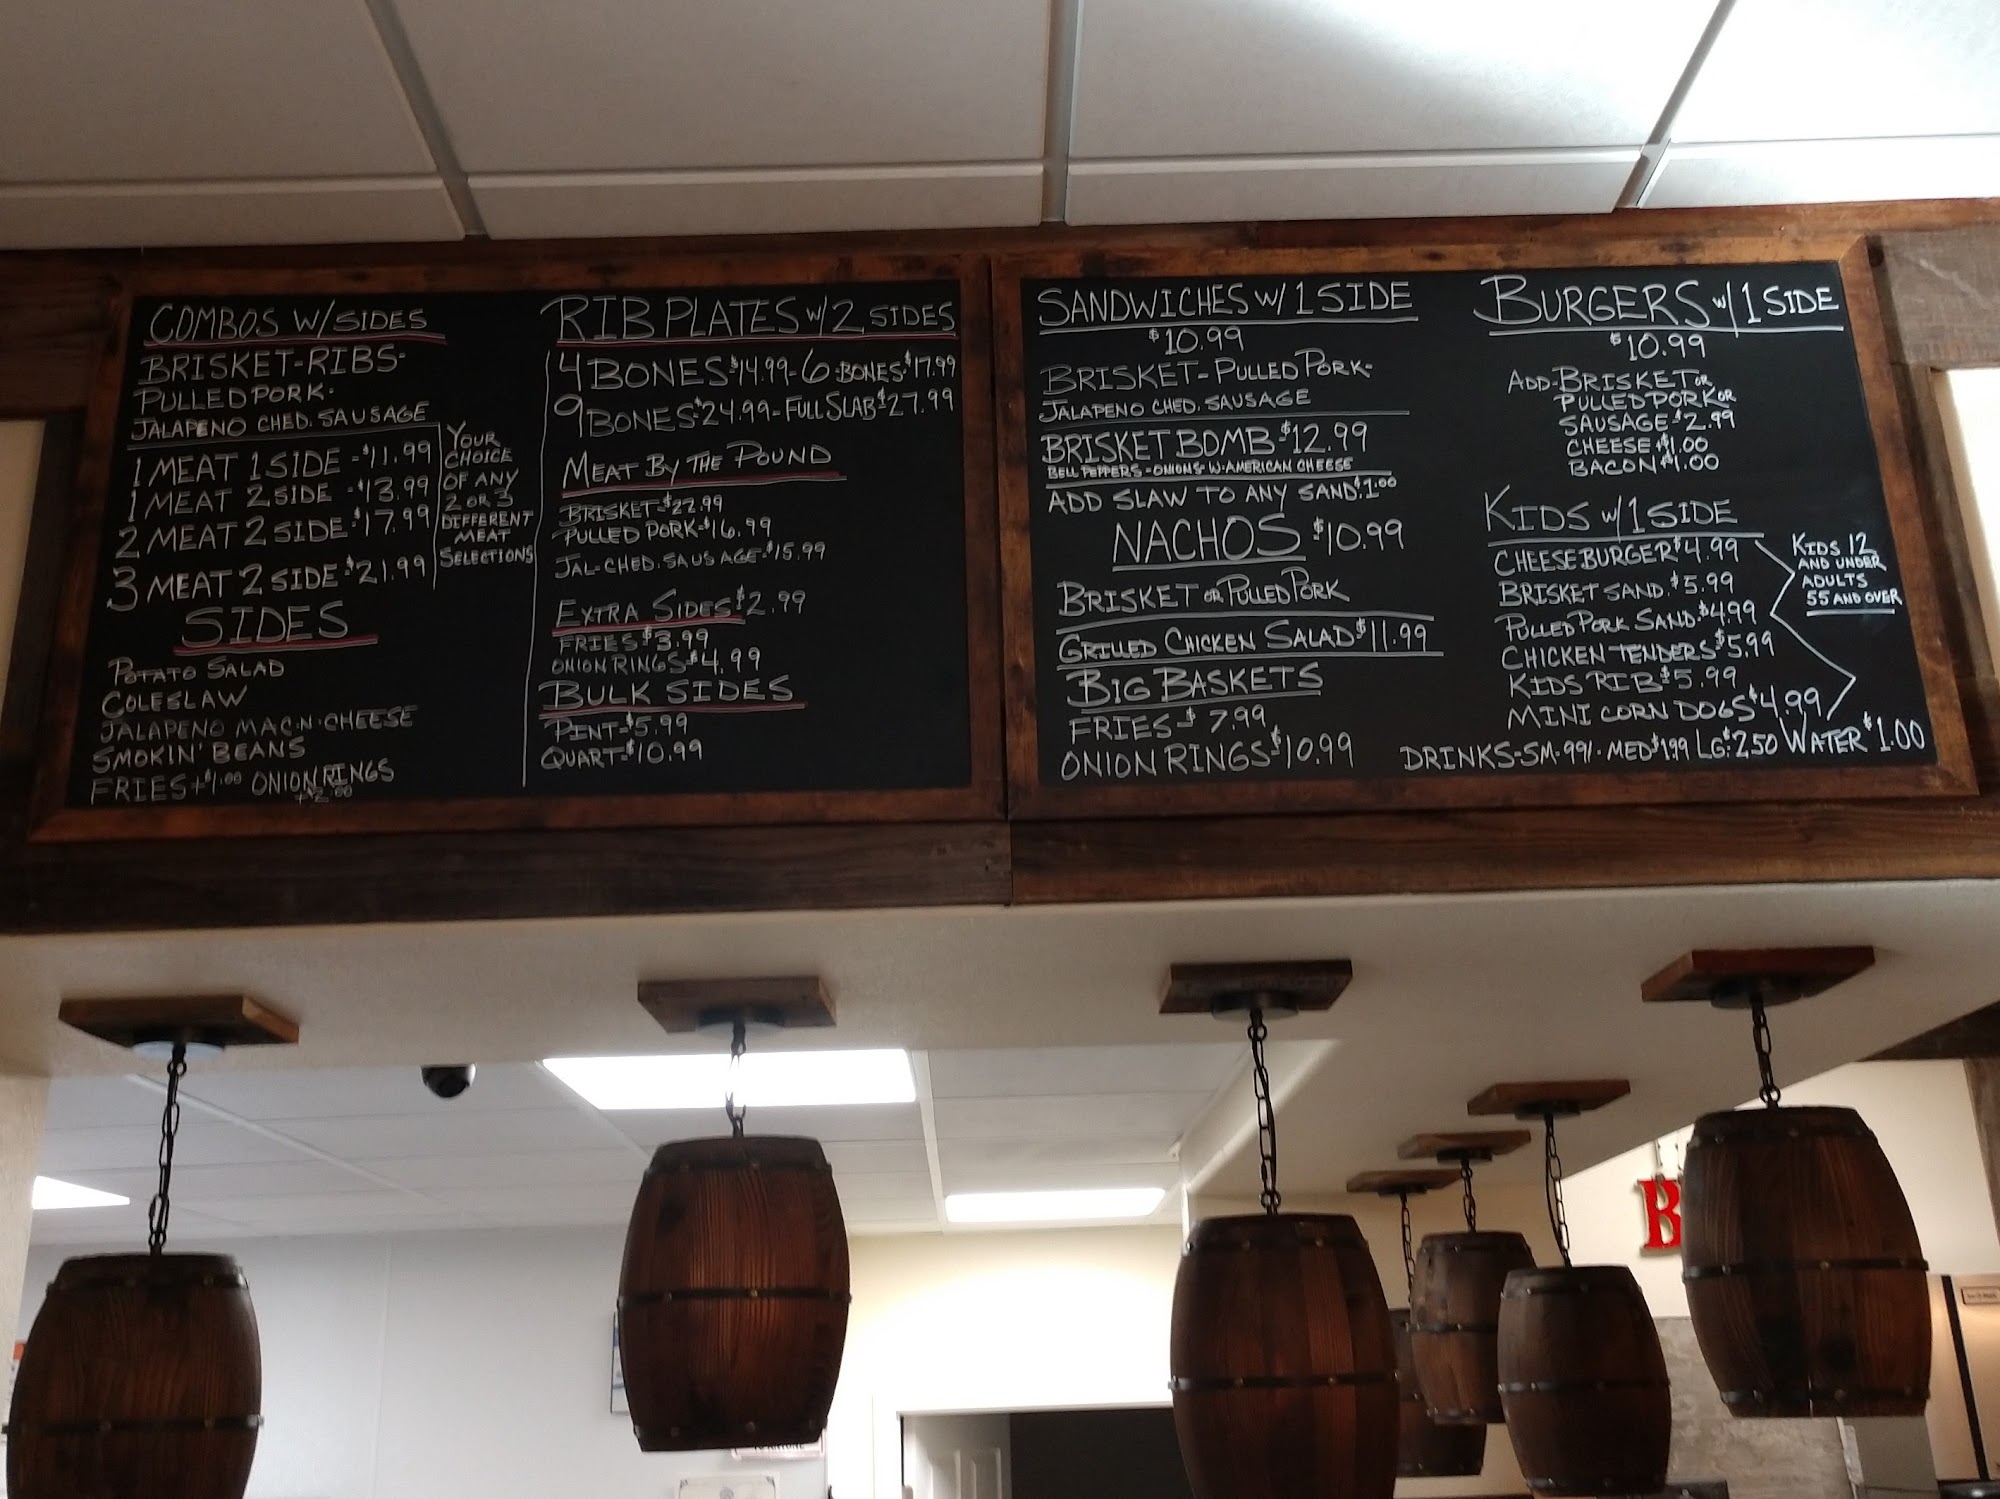 COMBOS W/SIDES
BRISKET-RIBS-
PULLED PORK-
JALAPENO CHED. SAUSAGE
1 MEAT 1 SIDE -$11.99
1 MEAT 2 SIDE -$13.99
2 MEAT 2 SIDE-$17.99
3 MEAT 2 SIDE-$21.99
YOUR
CHOICE
OF ANY
2 OR 3
DIFFERENT
MEAT
SELECTIONS
SIDES
POTATO SALAD
COLESLAW
JALAPENO MAC-N-CHEESE
SMOKIN' BEANS
FRIES+$1.00 ONION RINGS
+$2.00
RIB PLATES W/2 SIDES
4 BONES-$14.99-6-BONES-$17.99
9 BONES-$24.99-FULL SLAB$27.99
MEAT BY THE POUND
BRISKET-$22.99
PULLED PORK-$16.99
JAL-CHED. SAUSAGE-$15.99
EXTRA SIDES$2.99
FRIES$3.99
ONION RINGS-$4.99
BULK SIDES
PINT-$5.99
QUART-$10.99
SANDWICHES W/1 SIDE
$10.99
BRISKET-PULLED PORK-
JALAPENO CHED. SAUSAGE
BRISKET BOMB-$12.99
BELL PEPPERS-ONIONS-W-AMERICAN CHEESE
ADD SLAW TO ANY SAND.$1.00
NACHOS $10.99
BRISKET OR PULLED PORK
GRILLED CHICKEN SALAD$11.99
BIG BASKETS
FRIES-$7.99
ONION RINGS-$10.99
BURGERS W/1 SIDE
$10.99
ADD-BRISKET OR
PULLED PORK OR
SAUSAGE-$2.99
CHEESE$1.00
BACON$1.00
KIDS W/1 SIDE
CHEESEBURGER$4.99
BRISKET SAND.$5.99
PULLED PORK SAND.$4.99
CHICKEN TENDERS$5.99
KIDS RIB$5.99
MINI CORN DOGS$4.99
KIDS 12
AND UNDER
ADULTS
55 AND OVER
DRINKS-SM-.99/. MED$1.99 LG.$2.50 WATER$1.00
B